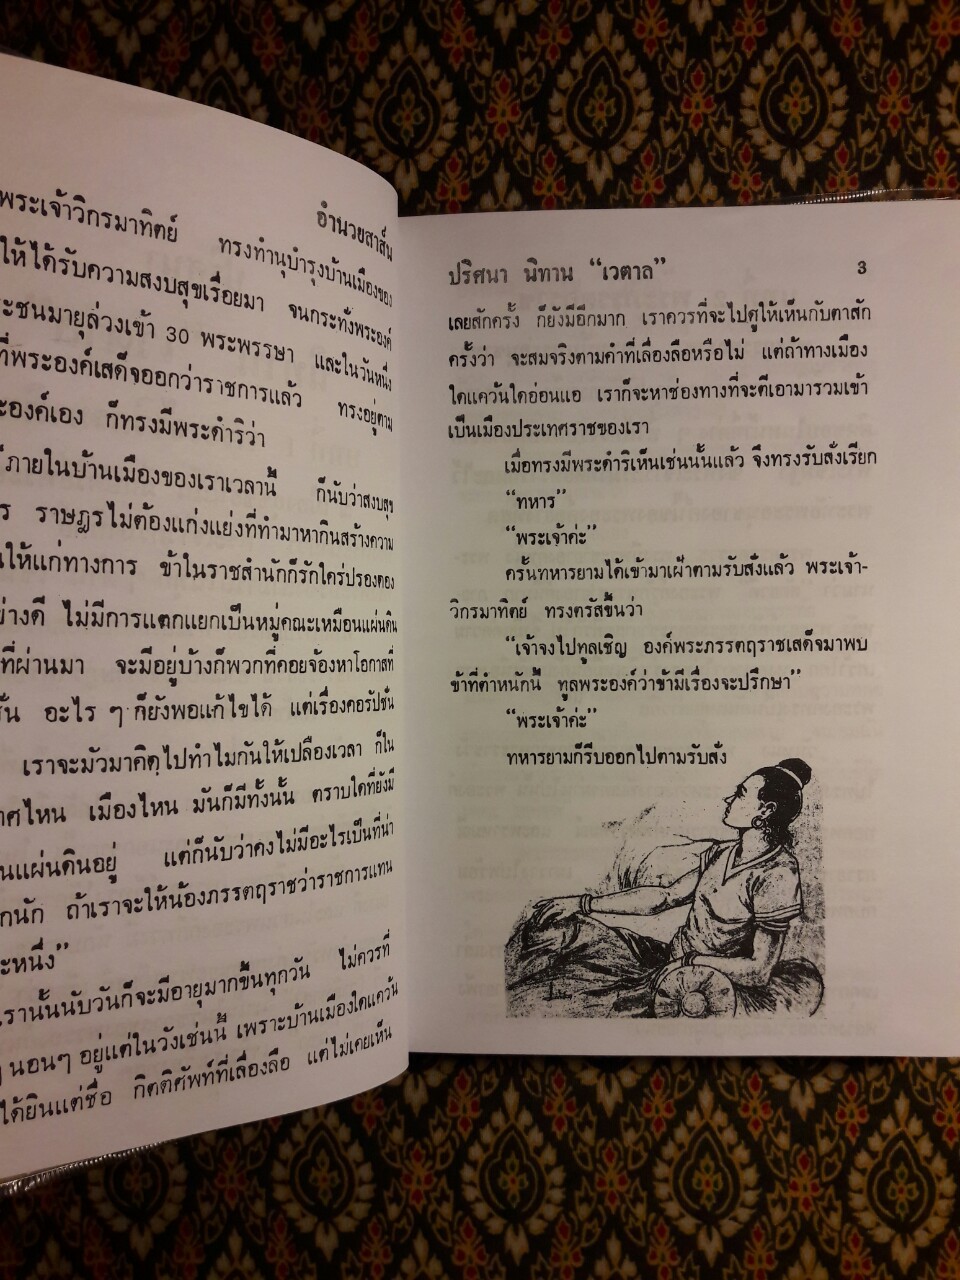 อำนวยสาส์น
พระเจ้าวิกรมาทิตย์ ทรงทำนุบำรุงบ้านเมืองของ
ให้ได้รับความสงบสุขเรื่อยมา จนกระทั่งพระองค์
ะชนมายุล่วงเข้า 30 พระพรรษา และในวันหนึ่ง
ที่พระองค์เสด็จออกว่าราชการแล้ว ทรงอยู่ตาม
ะองค์เอง ก็ทรงมีพระดำริว่า
ภายในบ้านเมืองของเราเวลานี้ ก็นับว่าสงบสุข
ร ราษฎรไม่ต้องแก่งแย่งที่ทำมาหากินสร้างความ
นให้แก่ทางการ ข้าในราชสำนักก็รักใคร่ปรองดอง
ย่างดี ไม่มีการแตกแยกเป็นหมู่คณะเหมือนแผ่นดิน
ที่ผ่านมา จะมีอยู่บ้างก็พวกที่คอยจ้องหาโอกาสที่
ชั่น อะไร ๆ ก็ยังพอแก้ไขได้ แต่เรื่องคอรัปชั่น
เราจะมัวมาคิดไปทำไมกันให้เปลืองเวลา ก็ใน
ทศไหน เมืองไหน มันก็มีทั้งนั้น ตราบใดที่ยังมี
นแผ่นดินอยู่ แต่ก็นับว่าคงไม่มีอะไรเป็นที่น่า
กนัก ถ้าเราจะให้น้องภรรตฤราชว่าราชการแทน
ะหนึ่ง”
เรานั้นนับวันก็จะมีอายุมากขึ้นทุกวัน ไม่ควรที่
ๆ นอนๆ อยู่แต่ในวังเช่นนี้ เพราะบ้านเมืองใดแคว้น
ได้ยินแต่ชื่อ กิตติศัพท์ที่เลื่องลือ แต่ไม่เคยเห็น
ปริศนา นิทาน “เวตาล” 3
เลยสักครั้ง ก็ยังมีอีกมาก เราควรที่จะไปดูให้เห็นกับตาสัก
ครั้งว่า จะสมจริงตามคำที่เลื่องลือหรือไม่ แต่ถ้าทางเมือง
ใดแคว้นใดอ่อนแอ เราก็จะหาช่องทางที่จะตีเอามารวมเข้า
เป็นเมืองประเทศราชของเรา
เมื่อทรงมีพระดำริเห็นเช่นนั้นแล้ว จึงทรงรับสั่งเรียก
“ทหาร”
“พระเจ้าค่ะ”
ครั้นทหารยามได้เข้ามาเฝ้าตามรับสั่งแล้ว พระเจ้า-
วิกรมาทิตย์ ทรงตรัสขึ้นว่า
“เจ้าจงไปทูลเชิญ องค์พระภรรตฤราชเสด็จมาพบ
ข้าที่ตำหนักนี้ ทูลพระองค์ว่าข้ามีเรื่องจะปรึกษา”
“พระเจ้าค่ะ”
ทหารยามก็รีบออกไปตามรับสั่ง